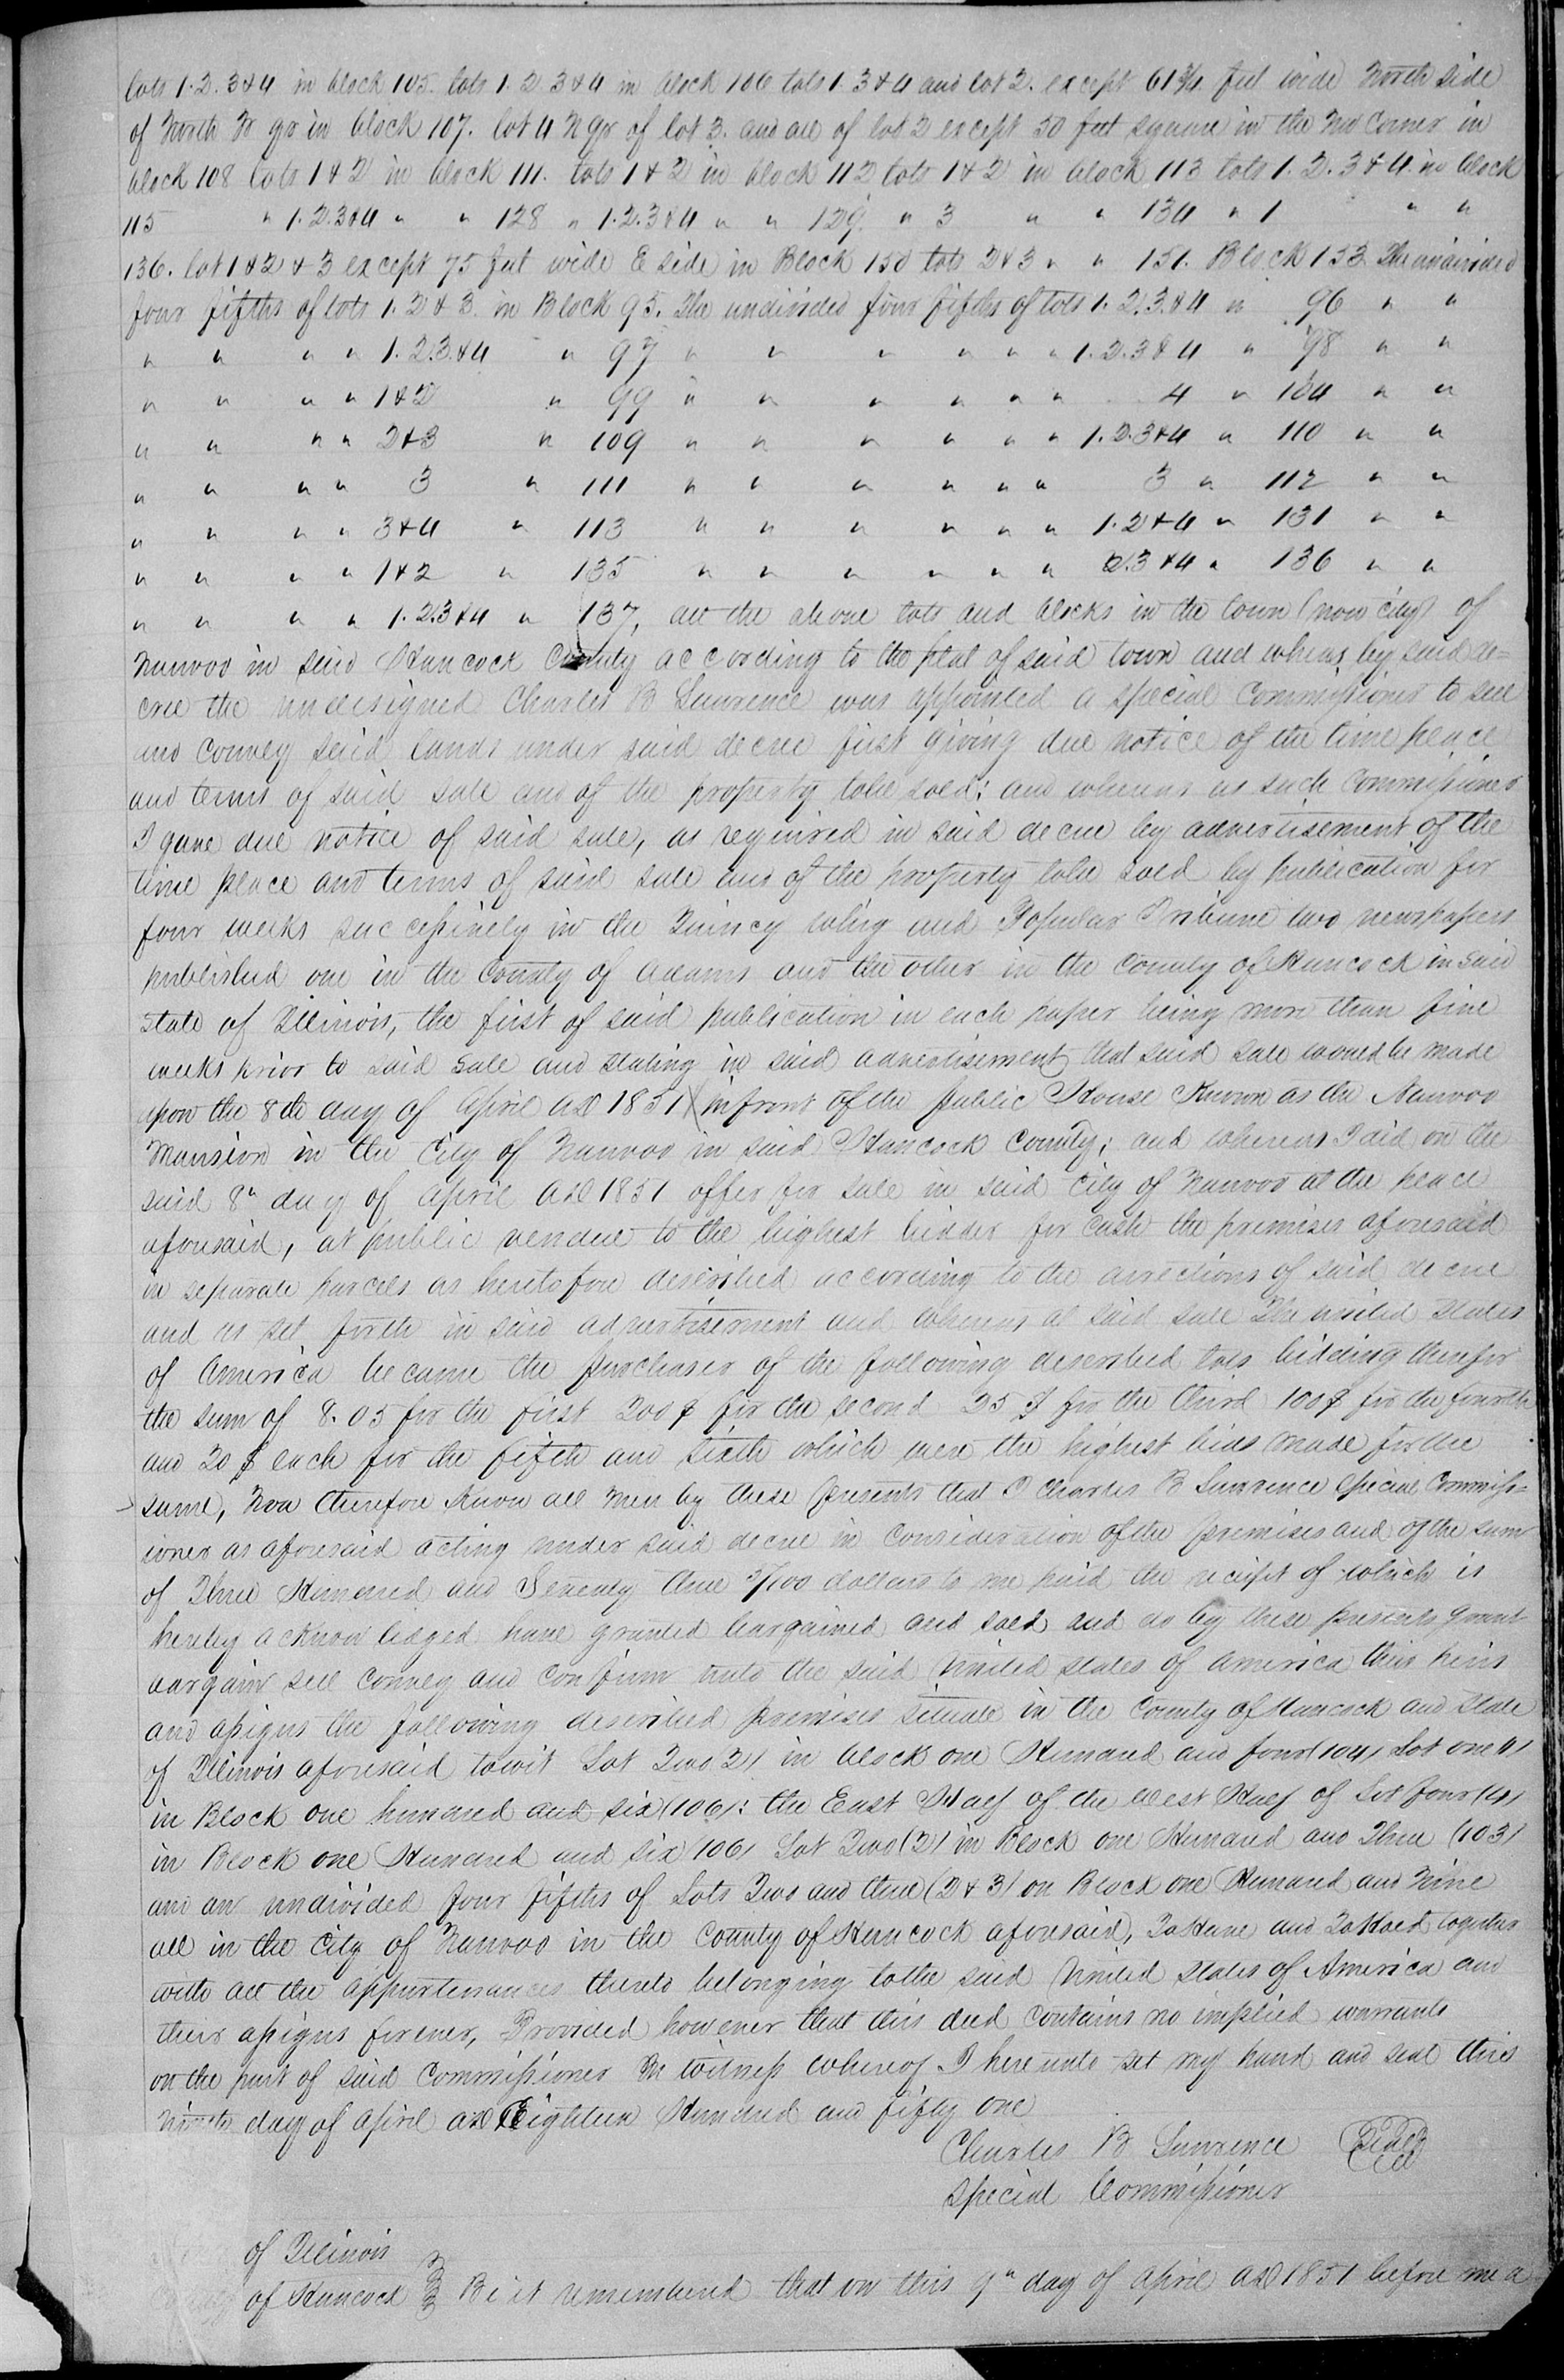 lots 1. 2. 3 & 4 in block 105. lots 1. 2 3 & 4 in block 106 lots 1. 3 & 4 and lot 2. except 61 3/4 feet wide North side
of North W qr in block 107. lot 4 N qr of lot 3. and all of lot 2 except 50 feet square in the NW Corner in
block 108 lots 1 & 2 in block 111. lots 1 & 2 in block 112 lots 1 & 2 in block 113 lots 1. 2. 3 & 4. in block
115 " 1. 2. 3 & 4 " " 128 " 1. 2. 3 & 4 " " 129. " 3 " " 134 " 1 " "
136. lot 1 & 2 & 3 except 75 feet wide E side in Block 150 lots 2 & 3 " " 151. Block 153 The undivided
four fifths of lots 1. 2 & 3. in Block 95. The undivided four fifths of lots 1. 2. 3. & 4 in 96 " "
" " " " 1. 2. 3. & 4 " 97 " " " " " " 1. 2. 3 & 4 " 98 " "
" " " " 1 & 2 " 99 " " " " " " 4 " 104 " "
" " " " 2 & 3 " 109 " " " " " " 1. 2. 3 & 4 " 110 " "
" " " " 3 " 111 " " " " " " 3 " 112 " "
" " " " 3 & 4 " 113 " " " " " " 1. 2 & 4 " 131 " "
" " " " 1 & 2 " 135 " " " " " " 2. 3 & 4 " 136 " "
" " " " 1. 2. 3 & 4 " 137, all the above lots and blocks in the town (now city) of
Nauvoo in said Hancock County according to the plat of said town and wheras by said de=
cree the undesigned Charles B Lawrence was appointed a special Commissioner to sell
and convey said lands under said decree first giving due notice of the time place
and terms of said sale and of the property to be sold; and whereas as such Commissioner
I gave due notice of said sale, as required in said decree by advertisement of the
time place and terms of said sale and of the property to be sold by publication for
four weeks successively in the Quincy whig and Popular Tribune two newspapers
published one in the County of Adams and the other in the County of Hancock in said
state of Illinois, the first of said publication in each paper being more than five
weeks prior to said Sale and stating in said advertisement that said sale would be made
upon the 8th day of April AD 1851 in front of the public House Known as the Nauvoo
Mansion in the City of Nauvoo in said Hancock County; and whereas I did on the
said 8" day of April AD 1851 offer for sale in said city of Nauvoo at the place
aforesaid, at public vendue to the highest bidder for cash the premises aforesaid
in separate parcels as heretofore described according to the directions of said decree
and as set forth in said advertisement and whereas at said sale The united states
of America became the purchaser of the following described lots bidding therefor
the sum of 8.05 for the first 200 $ for the second 25 $ for the third 100 $ for the fourth
and 20 $ each for the fifth and sixth which were the highest bids made for the
same, Now therefore Know all Men by these presents that I Charles B Lawrence Special Commiss=
ioner as aforesaid acting under said decree in Consideration of the premises and of the sum
of Three Hundred and Seventy three 5/100 dollars to me paid the receipt of which is
hereby acknowledged have granted bargained and sold and do by these presents grant
bargain sell convey and confirm unto the said United states of America their heirs
and assigns the following described premises situate in the County of Hancock and State
of Illinois aforesaid towit Lot Two 2) in block one Hundred and four (104) Lot one 1)
in Block one hundred and six (106): the East Half of the West Half of Lot four (4)
in Block one Hundred and six (106) Lot Two (2) in Block one Hundred and Three (103)
and an undivided four fifths of Lots Two and three (2 & 3) on Block one Hundred and Nine
all in the City of Nauvoo in the County of Hancock aforesaid, To Have and To Hold together
with all the appurtenances thereto belonging to the said United States of America and
their assigns forever, Provided however that this deed contains no implied warrants
on the part of said Commissioner In witness whereof I hereunto set my hand and seal this
Ninth day of April AD Eighteen Hundred and fifty one
Charles B Lawrence Seal
Special Commissioner
of Illinois
of Hancock Be it remembered that on this 9" day of April AD 1851 before me a